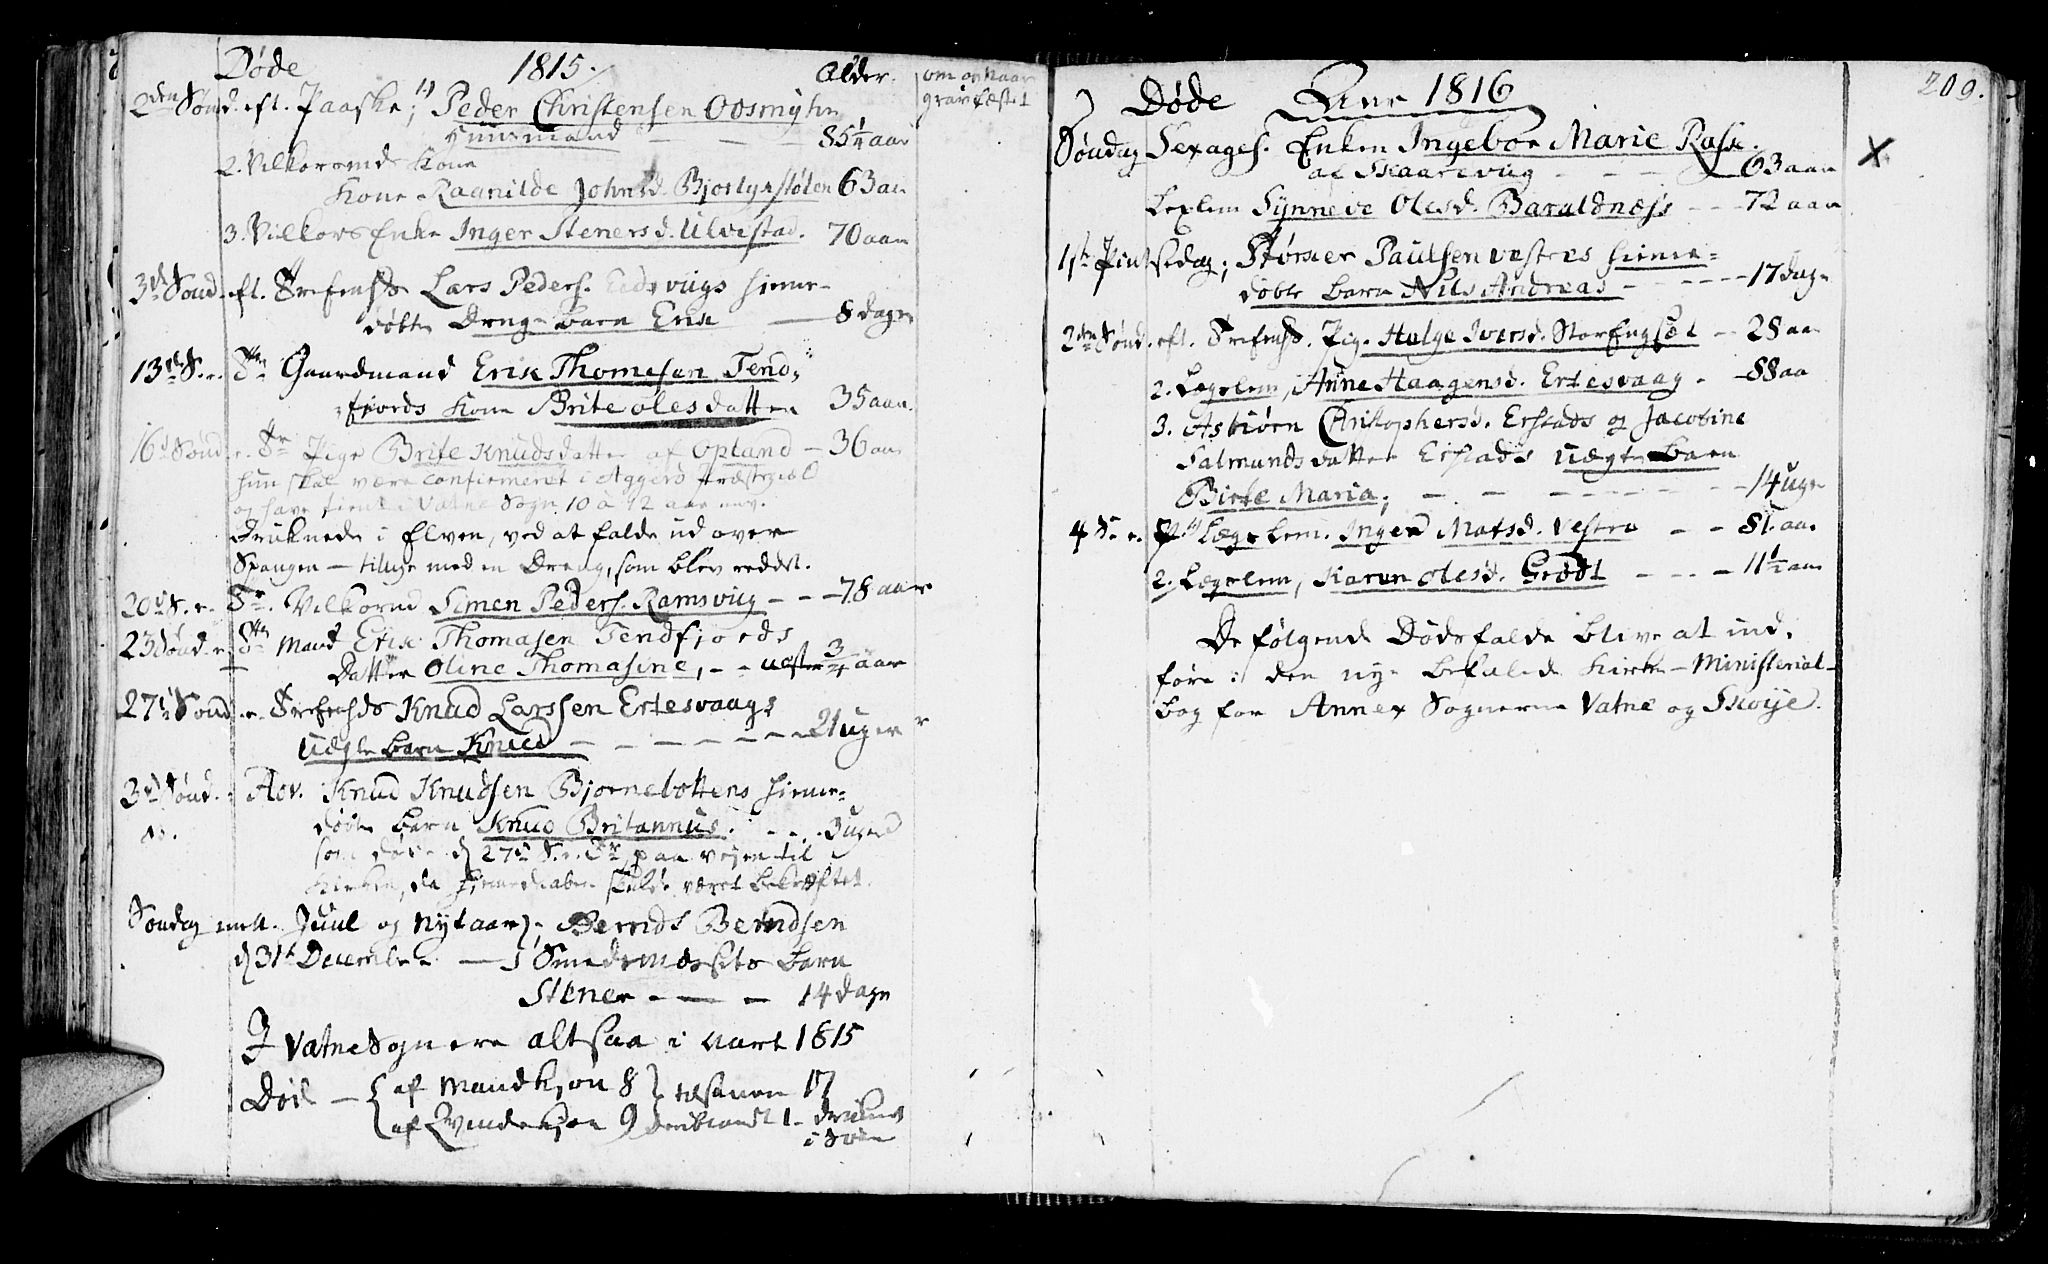 Døde 1815. Alder. om og naar
gravfæstet
2den Sønd. eft. Paaske; 1) Peder Christensen Oosmyhr
Huusmand — — — 85¼ aar
2. Vilkormds Kone
Kone Raanilde Johnsd. Bjostyrstølen 63 aar
3. Vilkors Enke Inger Stenersd. Ulvestad. 70 aar
3d Sønd. eft. Trefensd Lars Peders. Eidsvigs Hieme-
døbte Drenge Barn Erik — 8 dage
13de S. e. Tr. Gaardmand Erik Thomesen Tend-
fjords Kone Brite Olesdatter 35 aar.
16d Sønd. e. Tr. Pige Brite Knudsdatter af Opland — 36 aar
hun skal være Confirmeret i Aggers Præstegield
og have tient i Vatne Sogn 10 a 12 aar
Druknede i Elven, ved at falde ud over
Spangen — tillige med en Dreng, som blev reddet.
20de S. e. Tr. Vilkormd Simen Peders. Ramsvug - - - 78 aar
23 Sønd. e. Tr. Mand Erik Thomasen Tendfjords
Datter Oline Thomasine, - - næsten ¾ aar
27de Sønd. e. Trefensd Knud Larssen Ertesvaags
Uægte Barn Knud — — — — — 21 uger
3d Sønd. i Adv. Knud Knudsen Bjørnebottens Hieme-
døbte Barn Knud Britannus. - - - 3 uger
som døde d. 27de S. e. Tr. paa vejen til
Kirken, da Hiemedaaben skulde været bekræftet.
Søndag mell. Juul og Nytaar; Bernds Berndsen
d 31te December — Smedsmærsets Barn
Stener - — — 14 dage
I Vatne Sogn ere altsaa i aaret 1815
Døde — { af Mandkiøn 8 } tilsammen 17
af Qvindekiøn 9 deriblandt 1 druknet
i Søen
Døde Anno 1816 209.
Søndag Sexages. Enken Ingebor Marie Rask.
af Skaarevug - - - - 63 aar X
Leglem Synneve Olesd. Baraldnæss - - 72 aar
1ste Pintsedag; Størker Paulsen Vestres Hieme-
døbte Barn Nils Andreas - - - - - 17 dage
2den Sønd. eft. Trefensd. Pige Helge Iversd. StorEngset - 28 aar
2. Lægslem, Anne Haagensd. Ertesvaag - - 88 aar
3. Asbiørn Christophersd. Erstads og Jacobine
Salmundsdatter Erstads Uægte Barn
Birte Maria; - - - - - - - 14 uger
4 S. e. P. 1) Lægslem. Inger Matsd. Vestre - - 81 aar
2. Lægslem, Karen Olesd. Grødt - - - 11½ aar
De følgende Dødsfalde blive at ind-
føre i den nye befalede Kirke-Ministerial-
bog for Annex Sognerne Vatne og Skoije.